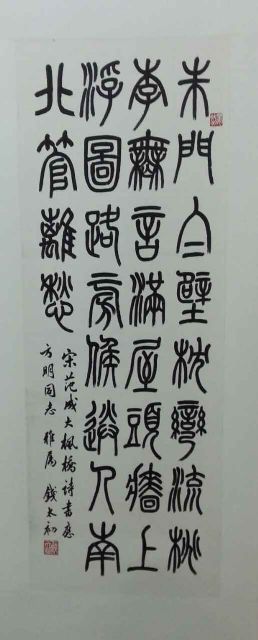 朱門白壁枕彎流桃
李無言滿屋頭牆上
浮圖路旁候送人南
北管離愁
宋范成大楓橋詩書應
方明同志雅屬 錢太初